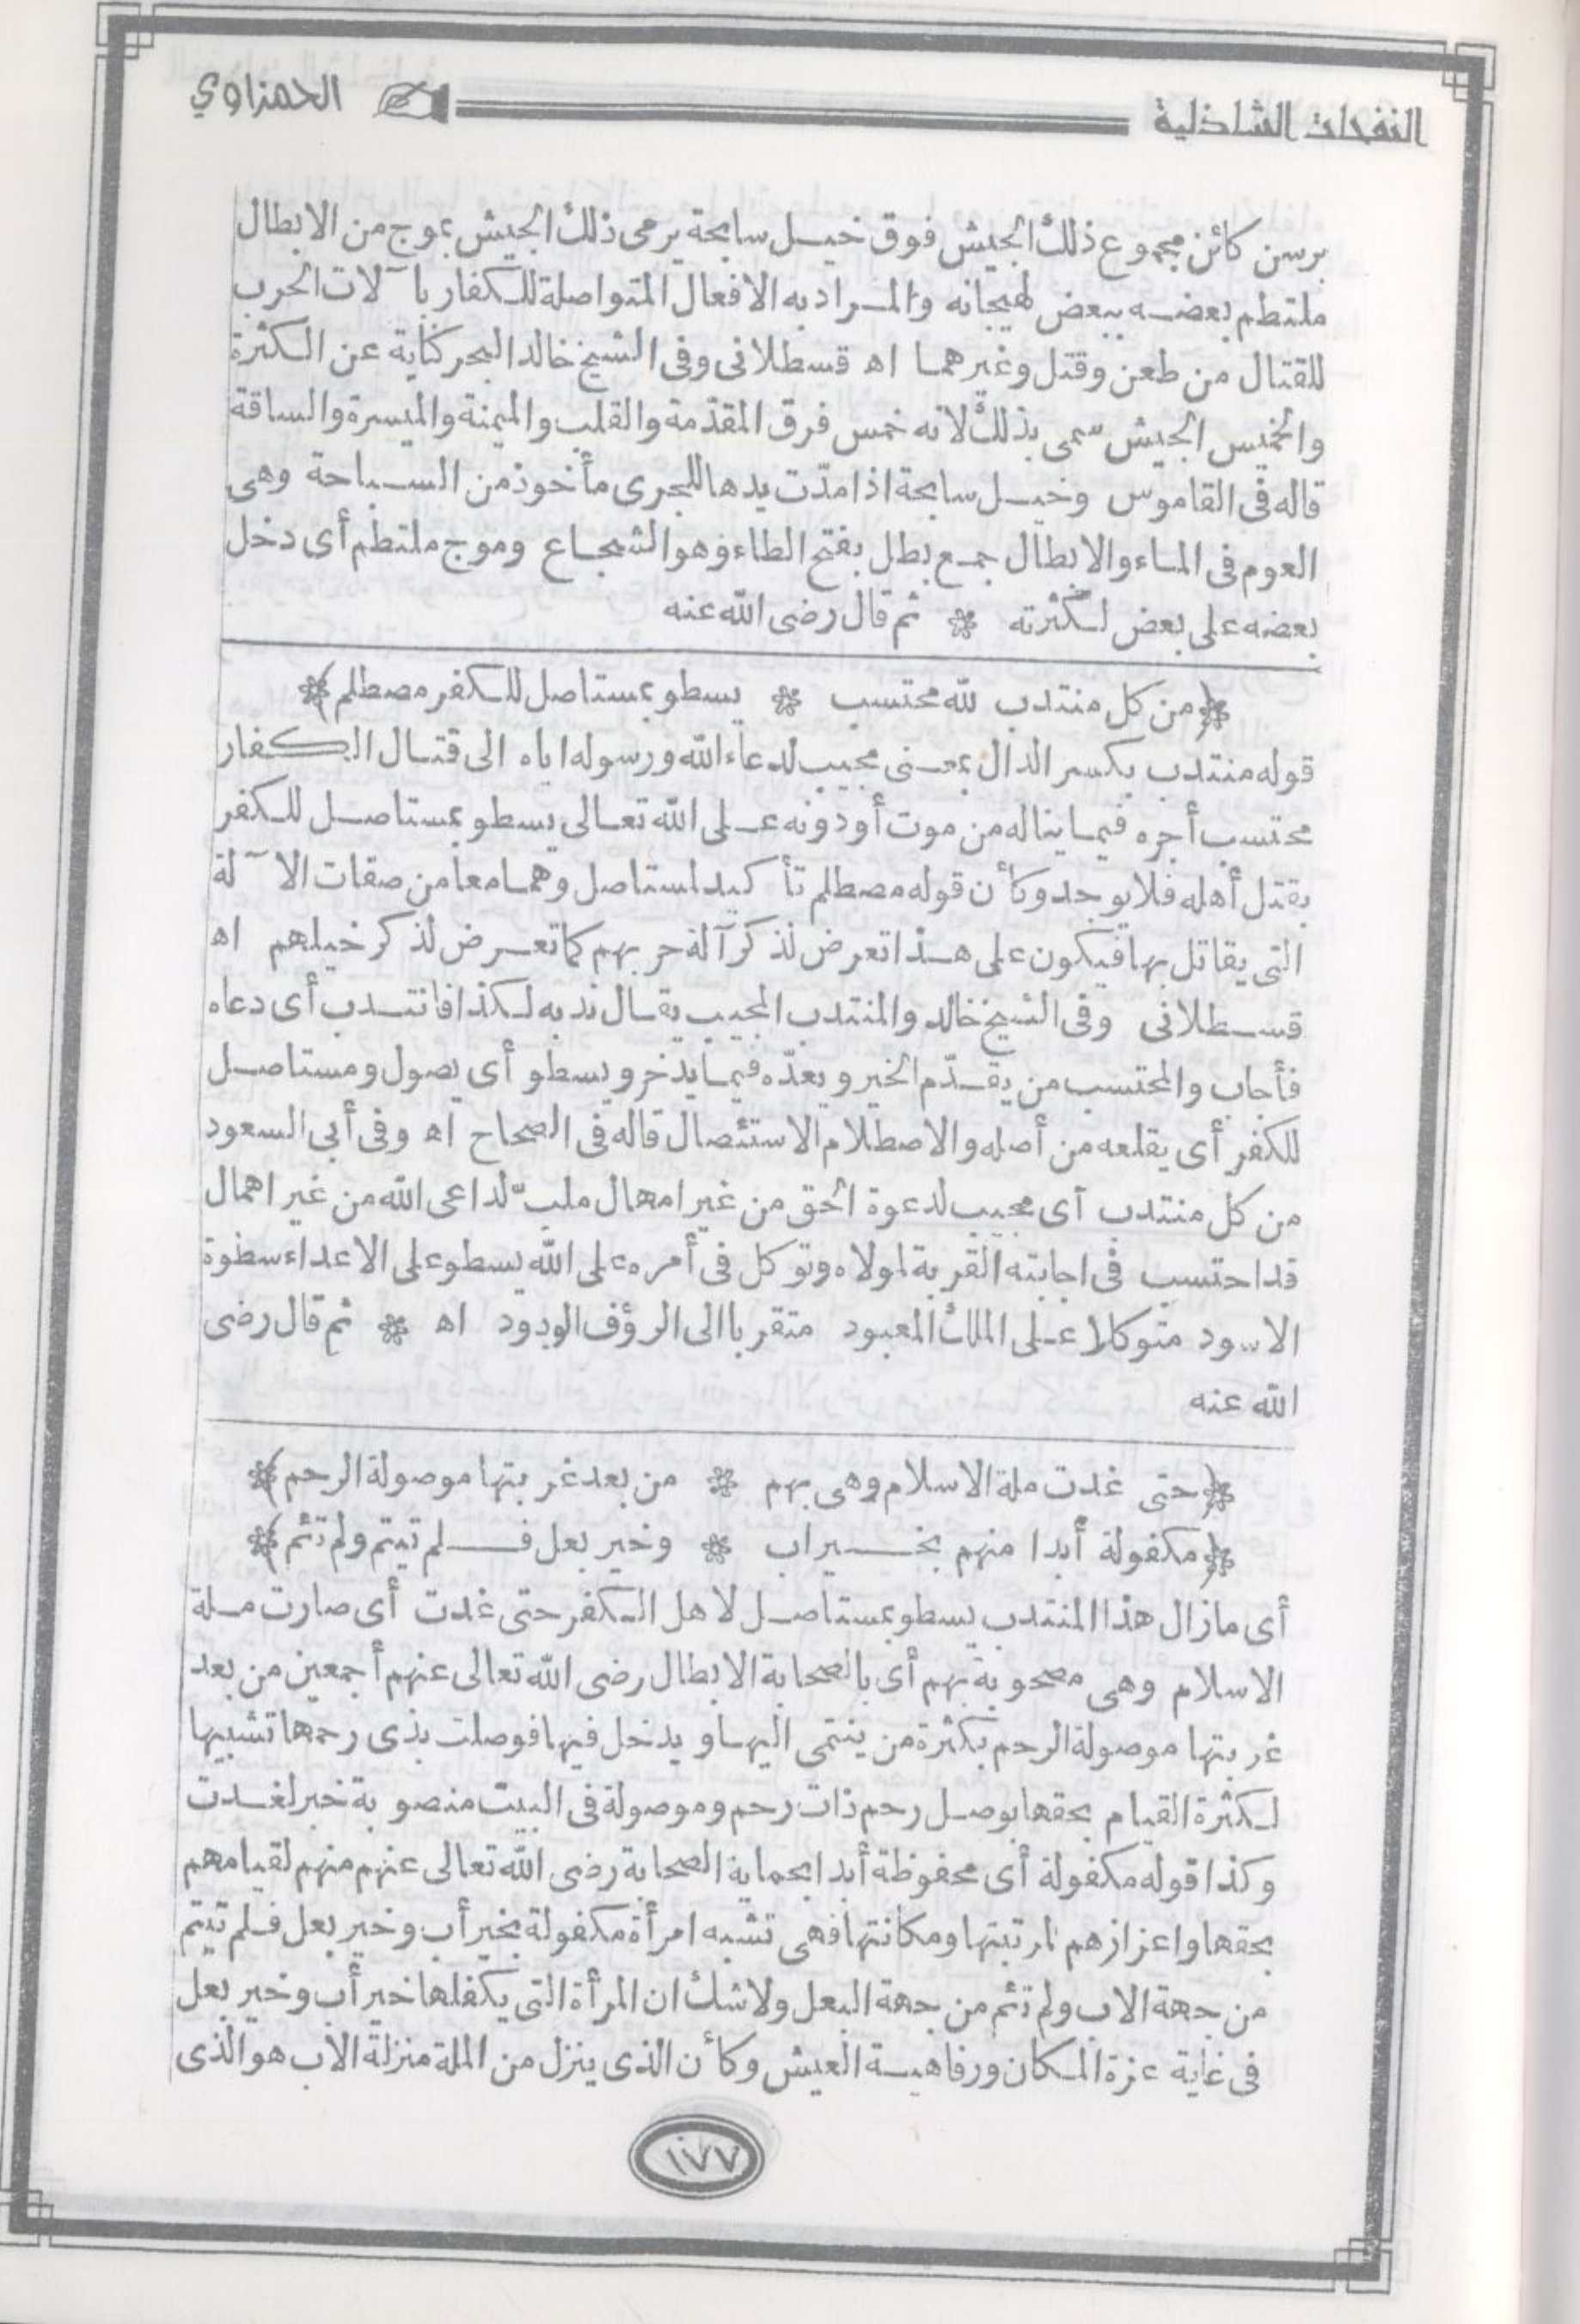 النفحات الشاذلية
الحمزاوي
برسن كائن مجموع ذلك الجيش فوق خيل سابحة يرمى ذلك الجيش بموج من الابطال
ملتطم بعضه ببعض لهيجانه والمراد به الافعال المتواصلة للكفار بآلات الحرب
للقتال من طعن وقتل وغيرهما اه قسطلانى وفى الشيخ خالد البحر كناية عن الكثرة
والخميس الجيش سمى بذلك لانه خمس فرق المقدّمة والقلب والميمنة والميسرة والساقة
قاله فى القاموس وخيل سابحة اذا مدّت يدها للجرى مأخوذ من السباحة وهى
العوم فى الماء والابطال جمع بطل بفتح الطاء وهو الشجاع وموج ملتطم أى دخل
بعضه على بعض لكثرته * ثم قال رضى الله عنه
﴿من كل منتدب لله محتسب * يسطو بمستاصل للكفر مصطلم﴾
قوله منتدب بكسر الدال بمعنى مجيب لدعاء الله ورسوله اياه الى قتال الكفار
محتسب أجره فيما يناله من موت أو دونه على الله تعالى يسطو بمستاصل للكفر
بقتل أهله فلا يوجد وكأن قوله مصطلم تأكيد لمستاصل وهما معا من صفات الآلة
التى يقاتل بها فيكون على هذا تعرض لذكر آلة حربهم كما تعرض لذكر خيلهم اه
قسطلانى وفى الشيخ خالد والمنتدب المجيب يقال ندبه لكذا فانتدب أى دعاه
فأجاب والمحتسب من يقدّم الخير ويعدّه فيما يذخر ويسطو أى يصول ومستاصل
للكفر أى يقلعه من أصله والاصطلام الاستئصال قاله فى الصحاح اه وفى أبى السعود
من كل منتدب أى مجيب لدعوة الحق من غير امهال ملبّ لداعى الله من غير اهمال
قد احتسب فى اجابته القربة لمولاه وتوكل فى أمره على الله يسطو على الاعداء سطوة
الاسود متوكلا على الملك المعبود متقربا الى الرؤف الودود اه * ثم قال رضى
الله عنه
﴿حتى غدت ملة الاسلام وهى بهم * من بعد غربتها موصولة الرحم﴾
﴿مكفولة أبدا منهم بخير اب * وخير بعل فلم تيتم ولم تئم﴾
أى مازال هذا المنتدب يسطو بمستاصل لاهل الكفر حتى غدت أى صارت ملة
الاسلام وهى مصحوبة بهم أى بالصحابة الابطال رضى الله تعالى عنهم أجمعين من بعد
غربتها موصولة الرحم بكثرة من ينتمى اليها ويدخل فيها فوصلت بذى رحمها تشبيها
لكثرة القيام بحقها بوصل رحم ذات رحم وموصولة فى البيت منصوبة خبر لغدت
وكذا قوله مكفولة أى محفوظة أبدا بحماية الصحابة رضى الله تعالى عنهم منهم لقيامهم
بحقها واعزازهم لمرتبتها ومكانتها فهى تشبه امرأة مكفولة بخير أب وخير بعل فلم تيتم
من جهة الاب ولم تئم من جهة البعل ولا شك ان المرأة التى يكفلها خير أب وخير بعل
فى غاية عزة المكان ورفاهية العيش وكأن الذى ينزل من الملة منزلة الاب هو الذى
١٧٧